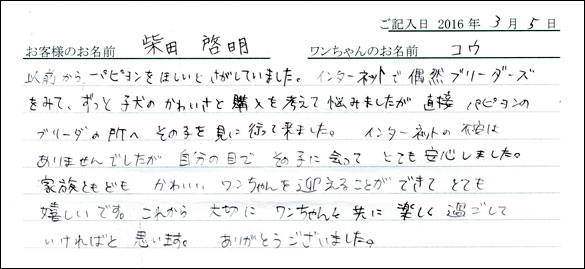 ご記入日 2016年 3月 5日
お客様のお名前 柴田 啓明 ワンちゃんのお名前 コウ
以前から パピヨンをほしいと さがしていました。 インターネットで 偶然 ブリーダーズ
をみて、ずっと 子犬の かわいさと 購入を 考えて 悩みましたが 直接 パピヨンの
ブリーダの 所へ その子を 見に 行って 来ました。 インターネットの 不安は
ありませんでしたが 自分の目で その子に 会って とても 安心しました。
家族ともども かわいい ワンちゃんを 迎えることが できて とても
嬉しいです。 これから 大切に ワンちゃんと 共に 楽しく 過ごして
いければと 思います。 ありがとうございました。